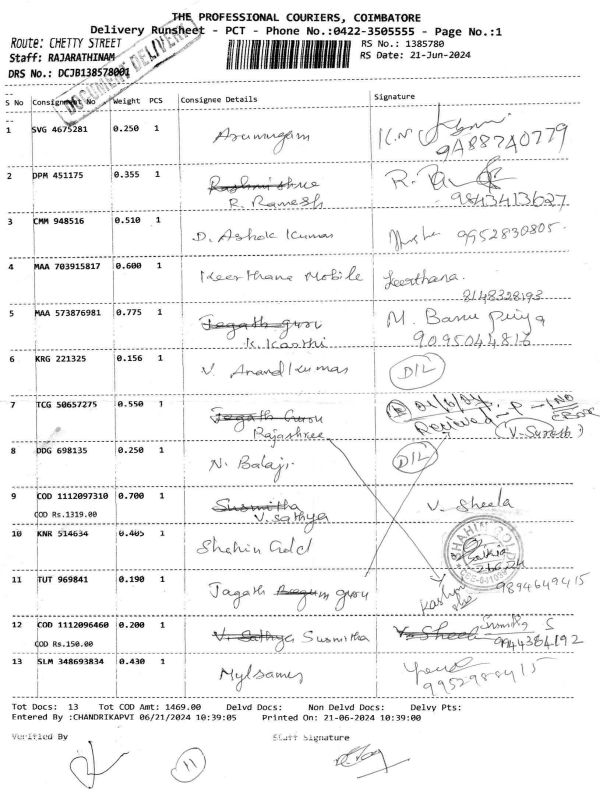 THE PROFESSIONAL COURIERS, COIMBATORE
Delivery Runsheet - PCT - Phone No.:0422-3505555 - Page No.:1
Route: CHETTY STREET
RS No.: 1385780
Staff: RAJARATHINAM
RS Date: 21-Jun-2024
DRS No.: DCJB138578001
DOCUMENT DELIVERY
S No Consignment No Weight PCS Consignee Details Signature
1 SVG 4675281 0.250 1 Arumugam K.N
9488740779
2 DPM 451175 0.355 1 R.
R. Ramesh 9843413627
3 CMM 948516 0.510 1 D. Ashok Kumar 9952830805.
4 MAA 703915817 0.600 1 Keerthana Mobile Keerthana.
8148328193
5 MAA 573876981 0.775 1 Jegath guru M. Banu Priya
K. Karthi 9095044816
6 KRG 221325 0.156 1 V. Anand Kumar D/L
7 TCG 50657275 0.550 1 Jegath Guru
Rajashree Received - P -
(V-Suresh)
8 DDG 698135 0.250 1 N. Balaji. D/L
9 COD 1112097310 0.700 1 Susmitha V. Sheela
COD Rs.1319.00 V. Sathya
10 KNR 514634 0.405 1 Shahin Gold
SHAHIN GOLD
11 TUT 969841 0.190 1 Jagath Begum guru 9894649415
12 COD 1112096460 0.200 1 V. Sathya Susmitha V. Sheela S
COD Rs.150.00 9944384192
13 SLM 348693834 0.430 1 Mylsamy
9952988415
Tot Docs: 13 Tot COD Amt: 1469.00 Delvd Docs: Non Delvd Docs: Delvy Pts:
Entered By :CHANDRIKAPVI 06/21/2024 10:39:05 Printed On: 21-06-2024 10:39:00
Verified By Staff Signature
11